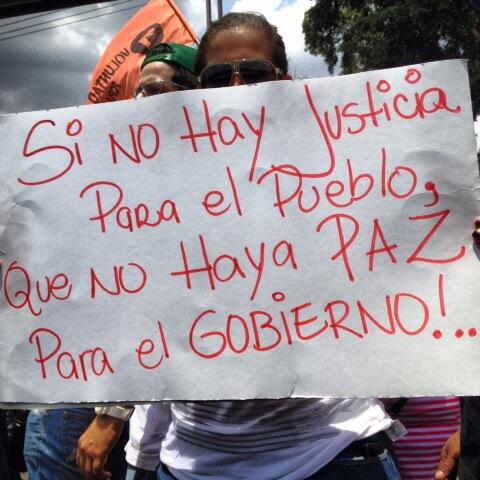 VOLUNTAD
Si NO Hay Justicia
Para el Pueblo,
Que NO Haya PAZ
Para el GOBIERNO!...